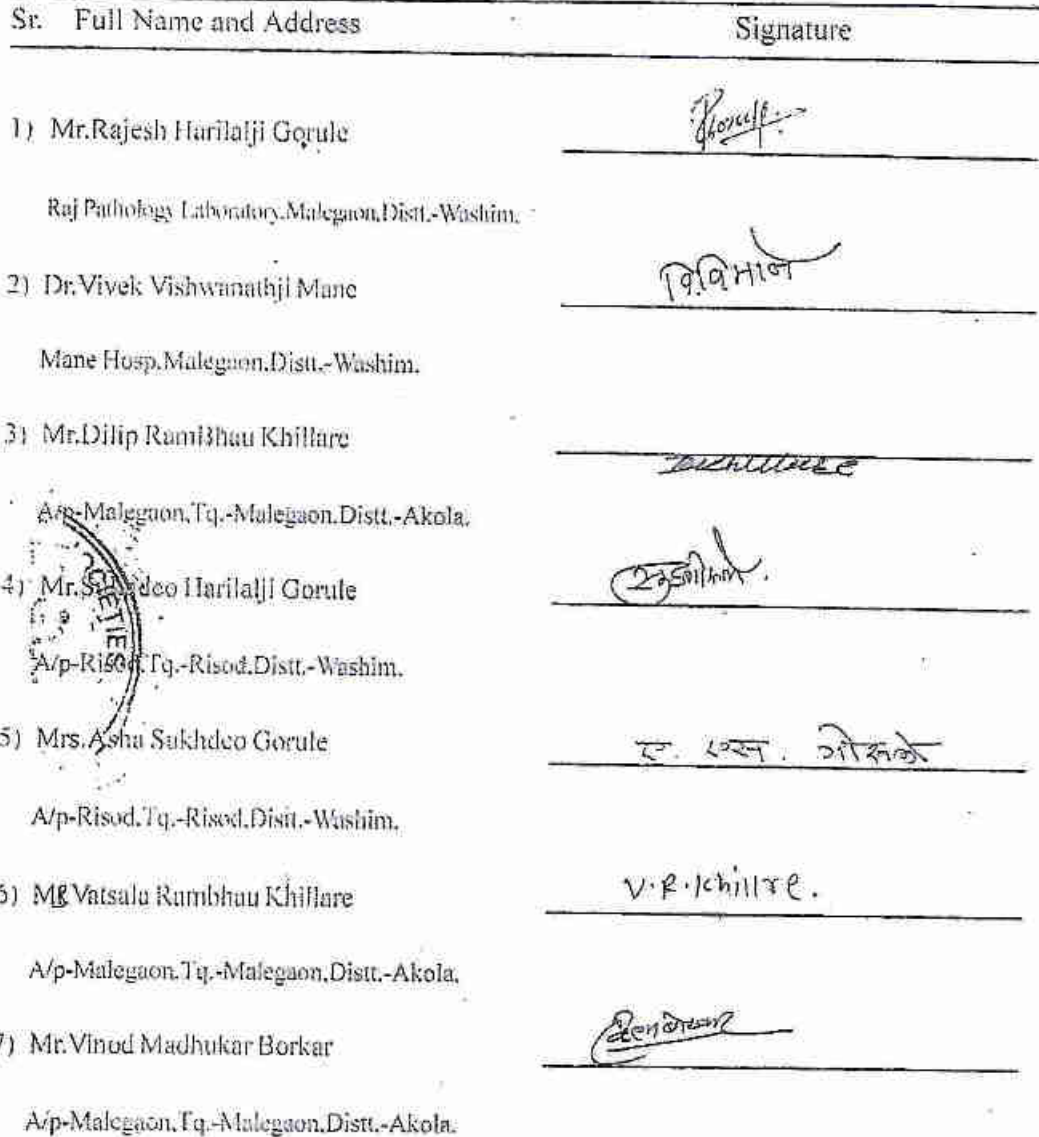 Sr. Full Name and Address Signature
1) Mr.Rajesh Harilalji Gorule
Raj Pathology Laboratory.Malegaon.Distt.-Washim.
2) Dr.Vivek Vishwanathji Mane वि.वि माने
Mane Hosp.Malegaon.Distt.-Washim.
3) Mr.Dilip RamBhau Khillare
A/p-Malegaon.Tq.-Malegaon.Distt.-Akola.
4) Mr. Harilalji Gorule
A/p-Risod.Tq.-Risod.Distt.-Washim.
5) Mrs.Asha Sukhdeo Gorule ए. एस.
A/p-Risod.Tq.-Risod.Distt.-Washim.
6) Vatsala Rambhau Khillare V.R.Khillre.
A/p-Malegaon.Tq.-Malegaon.Distt.-Akola.
7) Mr.Vinod Madhukar Borkar
A/p-Malegaon.Tq.-Malegaon.Distt.-Akola.